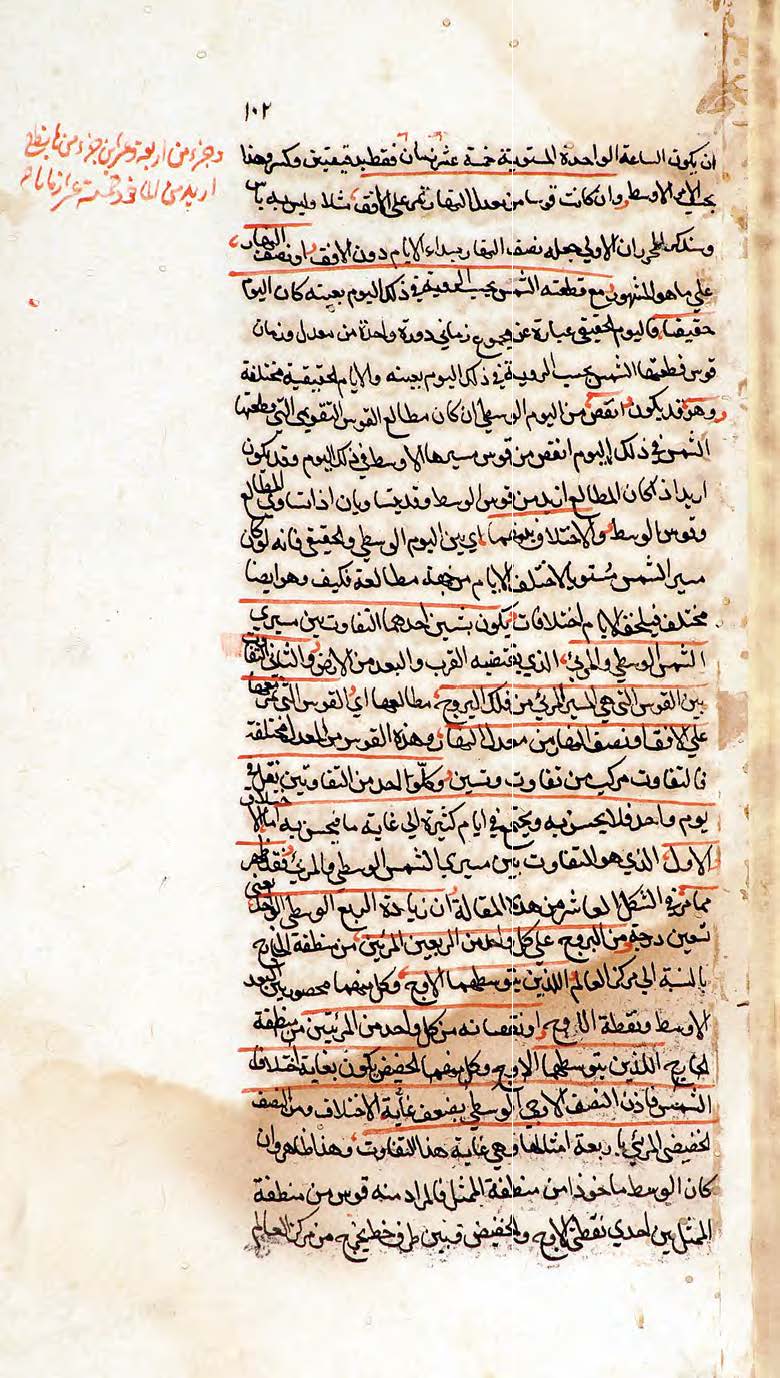 ١٠٢
ان يكون الساعة الواحدة المستوية خمسة عشر زمان فقط بدقيقتين وكسر وهذا
بحسب الامر الاوسط وان كانت قوسا من معدل النهار تمر على الافق مثلا وليس به باس
وسنذكر ان الاولى جعله نصف النهار مبداء الايام دون الافق او نصف النهار
على ما هو المشهور مع قطعته الشمس بحسب الرؤية في ذلك اليوم بعينه كان اليوم
حقيقيا فاليوم الحقيقي عبارة عن مجموع زماني دورة واحدة من معدل وزمان
قوس قطعتها الشمس بحسب الروية في ذلك اليوم بعينه والايام الحقيقية مختلفة
وهو قد يكون انقص من اليوم الوسطي ان كان مطالع القوس التقويمي التي قطعتها
الشمس في ذلك اليوم انقص من قوس سيرها الاوسط في ذلك اليوم وقد يكون
ازيد اذ اكان المطالع ازيد من قوس الوسط وقد يتساويان اذا تساوي المطالع
وقوس الوسط والاختلاف بينهما اي بين اليوم الوسطي والحقيقي فانه لو كان
مسير الشمس مستويا لاختلف الايام من جهة مطالعه فكيف وهو ايضا
مختلف فيلحق الايام اختلافات يكون بشيئين احدهما التفاوت بين مسيري
الشمس الوسطي والمرئي الذي يقتضيه القرب والبعد من الارض والثاني التفاوت
بين القوس التي هي المسير المرئي من فلك البروج مطالعها اي القوس التي تمر معها
على الافق او نصف النهار من معدل النهار وهذه القوس من المعدل مختلفة
فالتفاوت مركب من تفاوت وتين وكل واحد من التفاوتين يقل في
يوم واحد فلا يحس به ويجتمع في ايام كثيرة الى غاية ما فيحس به اما الاختلاف
الاول الذي هو التفاوت بين مسيري الشمس الوسطي والمرئي فقد ظهر
مما مر في الشكل العاشر من هذه المقالة ان زيادة الربع الوسطي الواحد يعني
تسعين درجة من البروج على كل واحد من الربعين المرئين من منطقة الخارج
بالنسبة الى مركز العالم اللذين يتوسطهما الاوج وكل منهما محصور بين البعد
الاوسط ونقطة الاوج او نقصانه من كل واحد من المرئيتين من منطقة
الخارج اللذين يتوسطهما الاوج وكل منهما الحضيض يكون بغاية اختلاف
الشمس فاذن النصف الاوجي الوسطي بضعف غاية الاختلاف ومن النصف
الحضيضي المرئي باربعة امثلها وهي غاية هذا التفاوت وهذا ظاهر وان
كان الوسط ماخوذا من منطقة الممثل فالمراد منه قوس من منطقة
الممثل بين احدي نقطتي الاوج والحضيض وبين طرف خط يخرج من مركز العالم